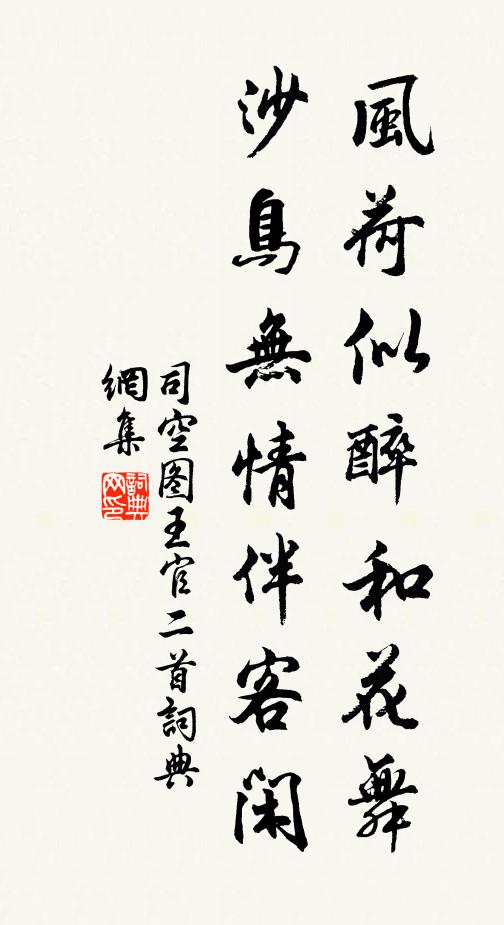 風荷似醉和花舞
沙鳥無情伴客閑
司空图王官二首詞典
網集
詞典
网印